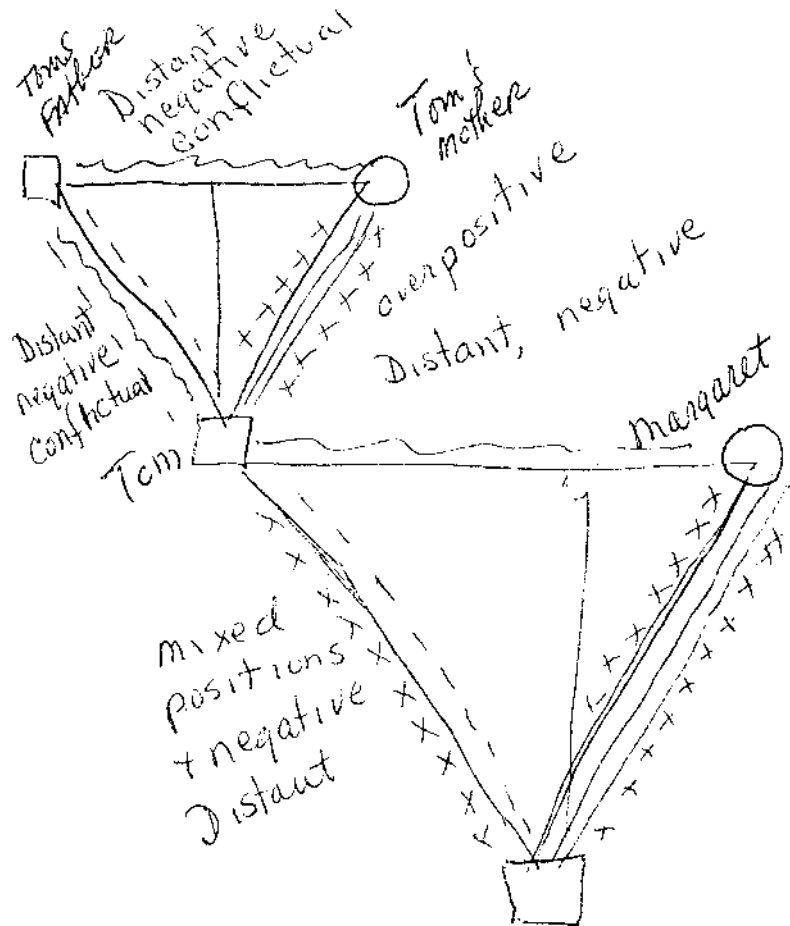 Tom's
Father
Distant
negative
conflictual
Tom's
mother
overpositive
Distant, negative
Distant
negative
conflictual
Tom
Margaret
mixed
positions
+ negative
Distant